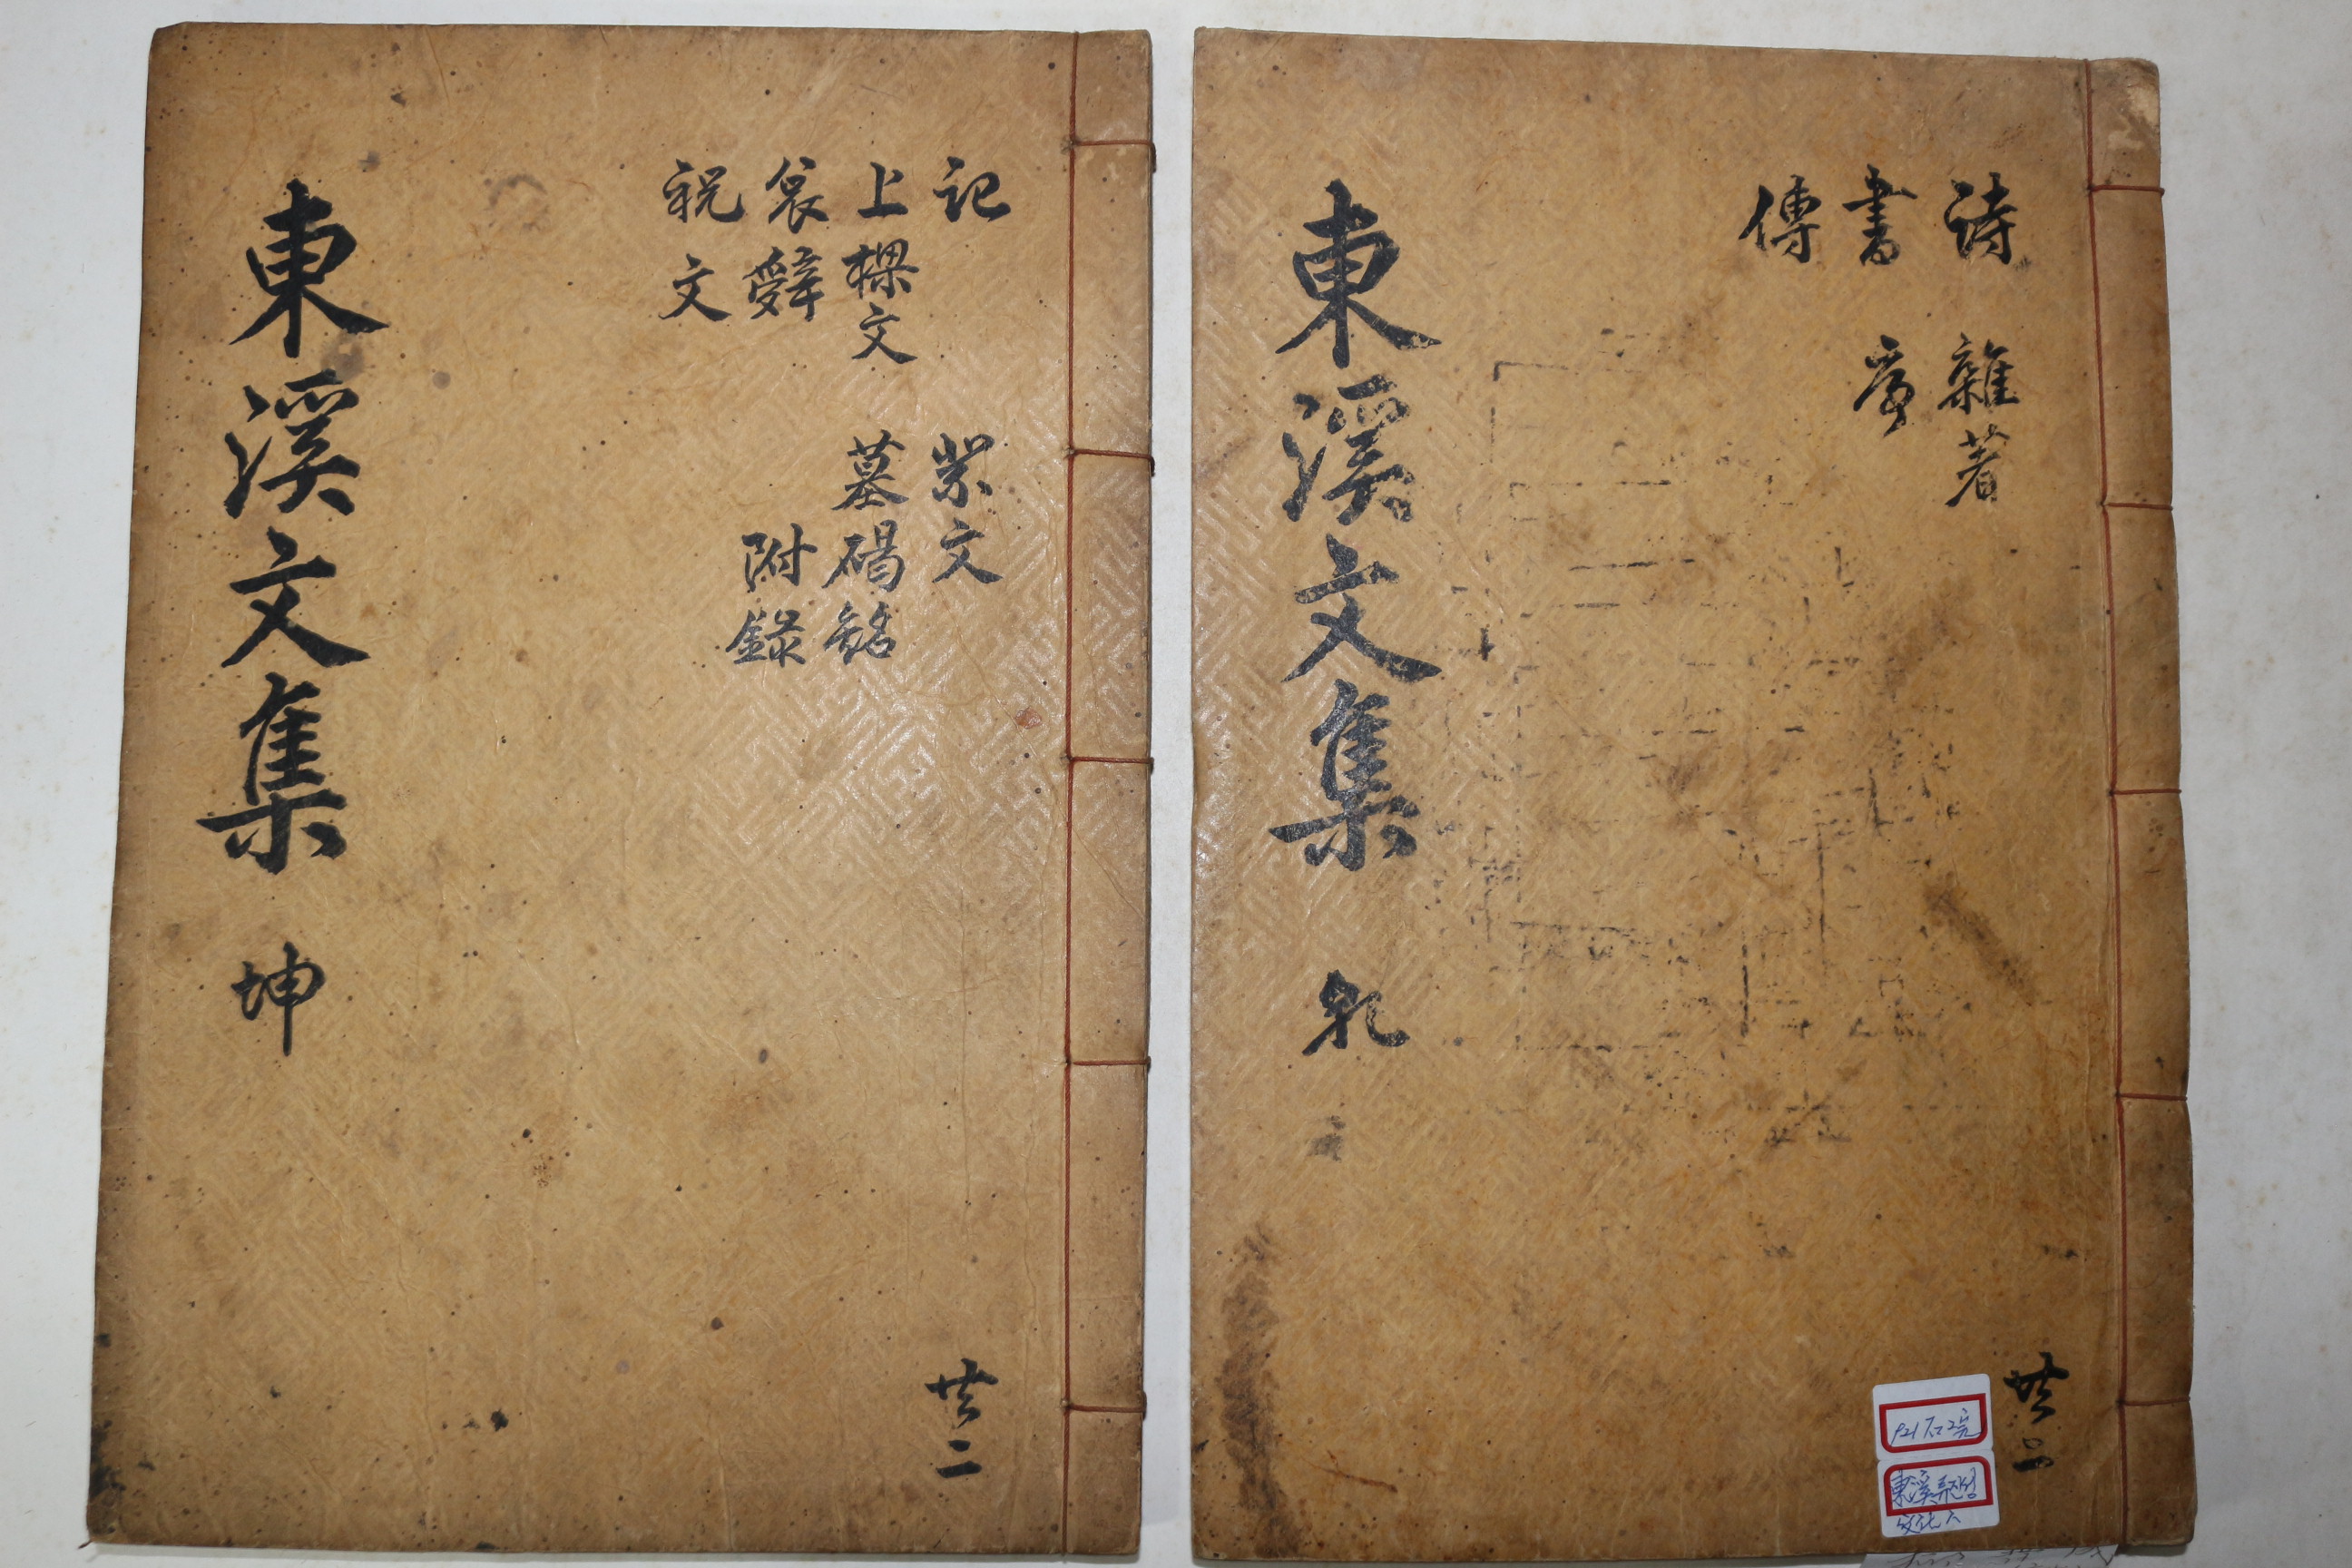 詩 雜著
書 序
傳
東溪文集 乾
共二
東溪
記 祭文
上樑文 墓碣銘
哀辭 附錄
祝文
東溪文集 坤
共二